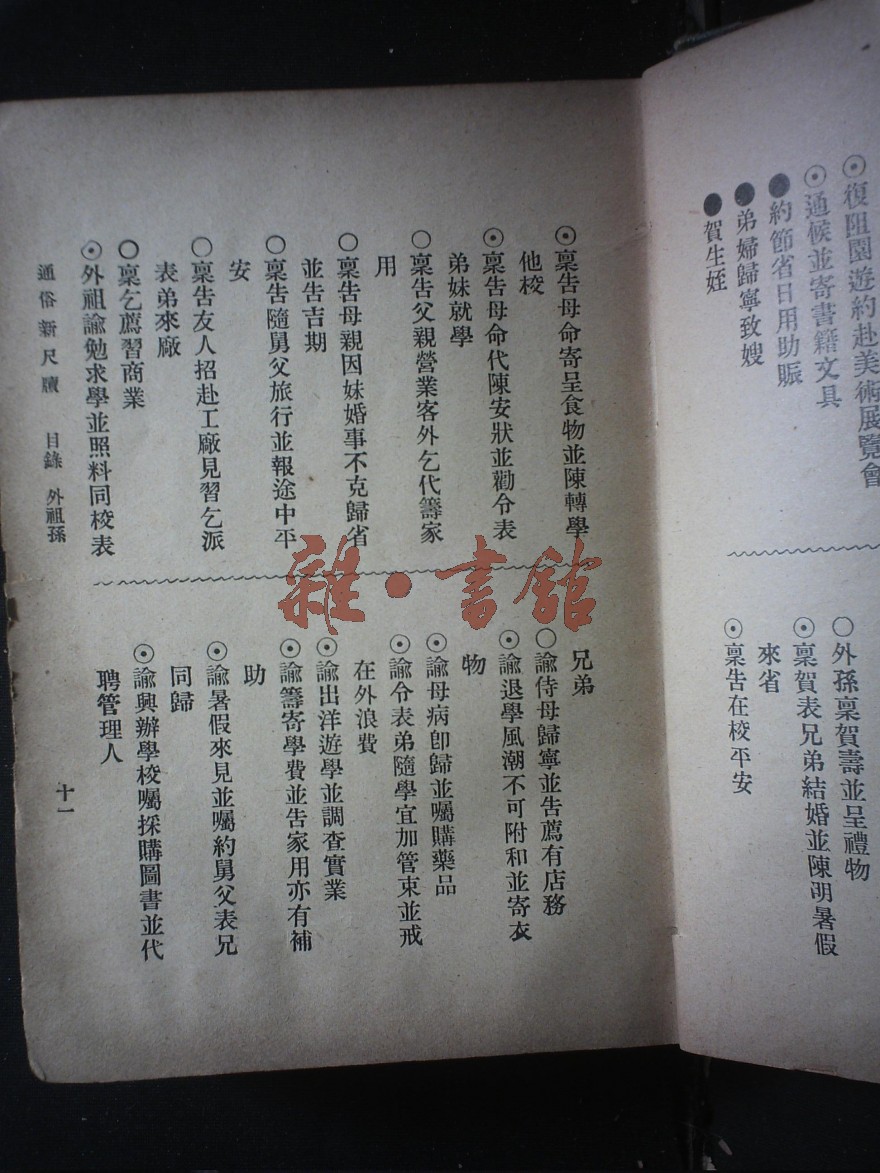 ⊙復阻園遊約赴美術展覽會
⊙通候並寄書籍文具
●約節省日用助賑
●弟婦歸寧致嫂
●賀生姪
○外孫稟賀壽並呈禮物
⊙稟賀表兄弟結婚並陳明暑假
來省
⊙稟告在校平安
⊙稟告母命寄呈食物並陳轉學
他校
⊙稟告母命代陳安狀並勸令表
弟妹就學
○稟告父親營業客外乞代籌家
用
○稟告母親因妹婚事不克歸省
並告吉期
○稟告隨舅父旅行並報途中平
安
○稟告友人招赴工廠見習乞派
表弟來廠
○稟乞薦習商業
⊙外祖諭勉求學並照料同校表
兄弟
○諭侍母歸寧並告薦有店務
⊙諭退學風潮不可附和並寄衣
物
⊙諭母病卽歸並囑購藥品
⊙諭令表弟隨學宜加管束並戒
在外浪費
⊙諭出洋遊學並調查實業
⊙諭籌寄學費並告家用亦有補
助
⊙諭暑假來見並囑約舅父表兄
同歸
⊙諭興辦學校囑採購圖書並代
聘管理人
通俗新尺牘 目錄 外祖孫
十一
雜·書館